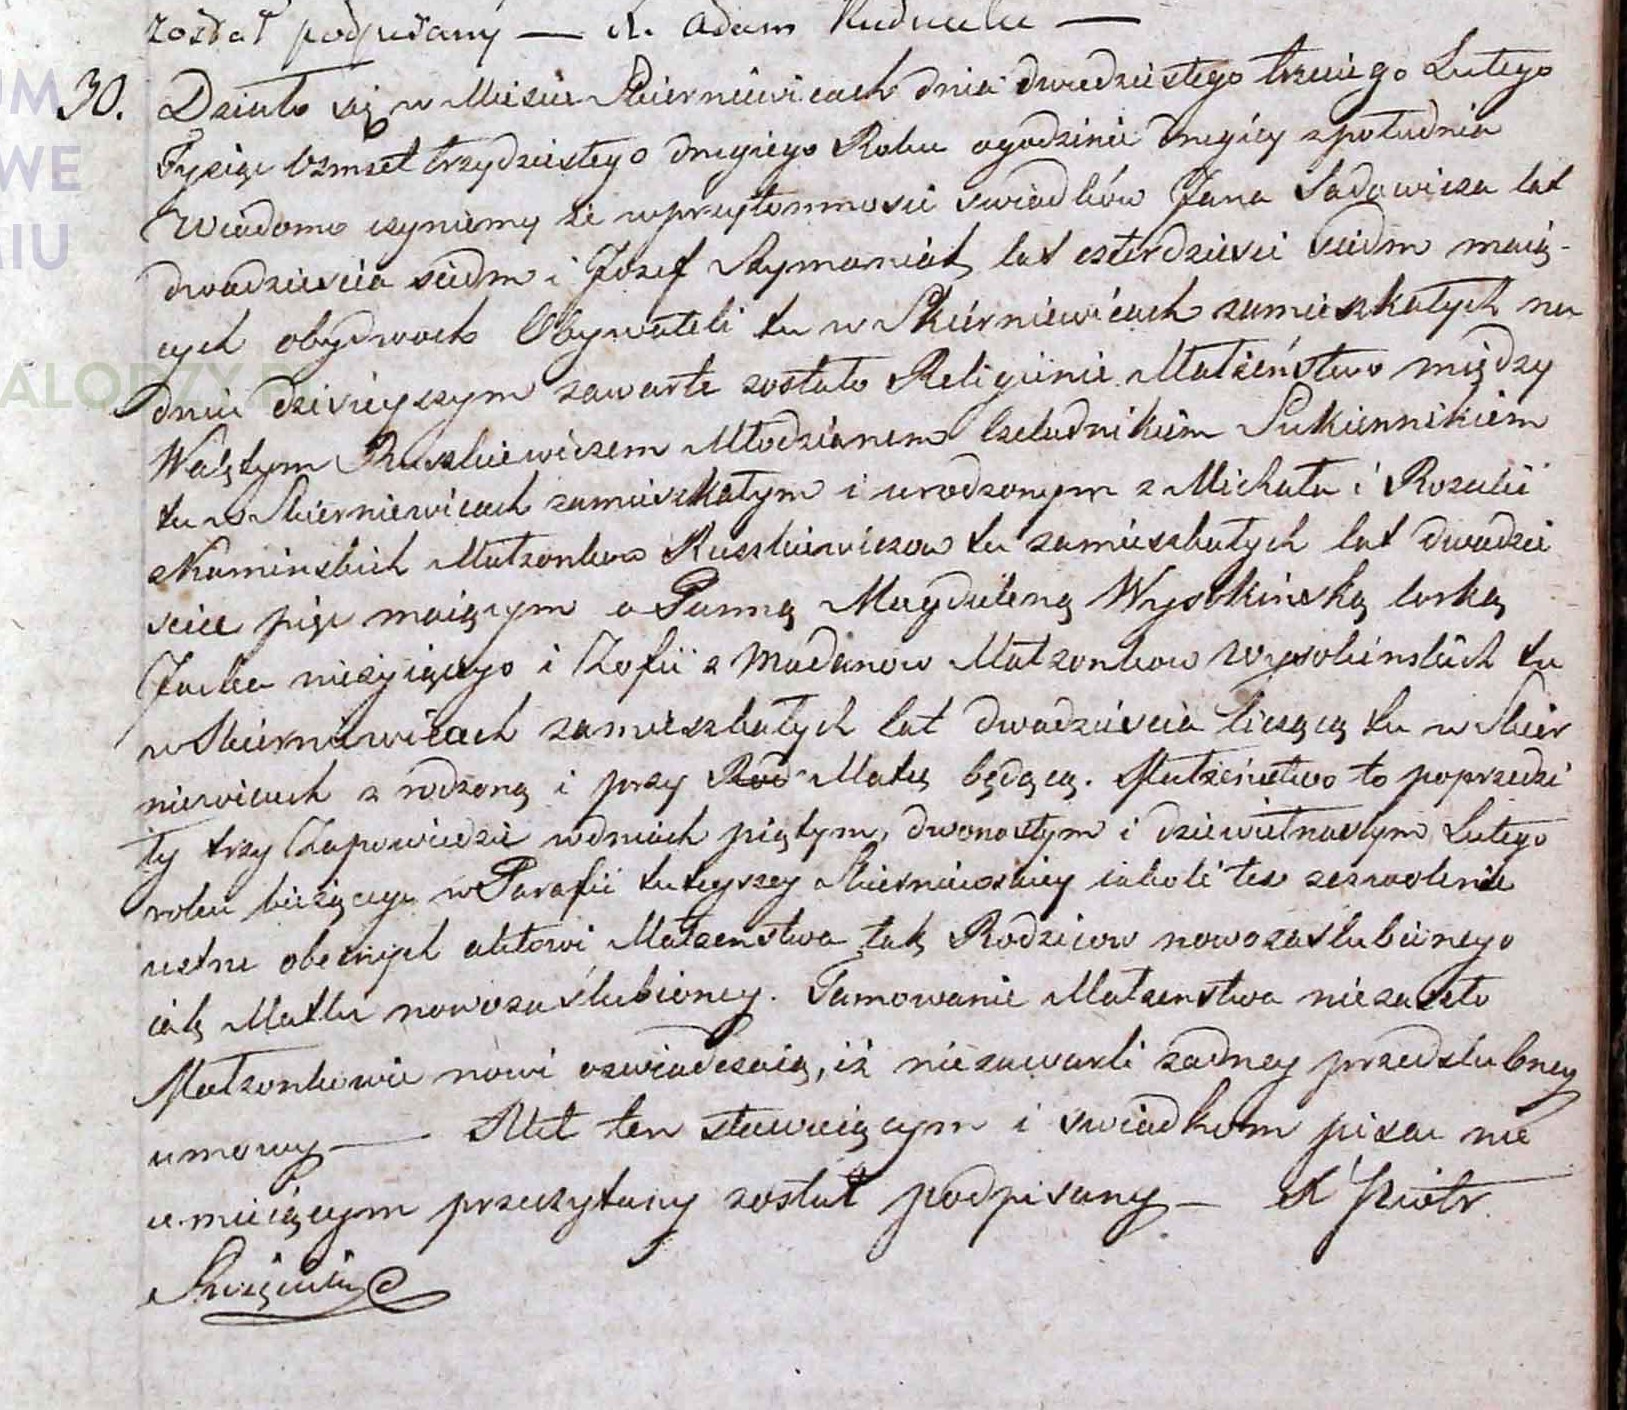 został podpisany — X. Adam
30. Działo się w Mieście Skierniewicach dnia dwudziestego trzeciego Lutego
Tysiąc Osmset trzydziestego drugiego Roku o godzinie drugiey z południa
Wiadomo czyniemy że w przytomnosci swiadków Jana Sadowicza lat
dwadziescia siedm i Jozef Szymaniak lat czterdziesci siedm maią-
cych obydwoch Obywateli tu w Skierniewicach zamieszkałych na
dniu dzisieyszym zawarte zostało Religiinie Małżeństwo między
Walętym Ruszkiewiczem Młodzianem Czeladnikiem Sukiennikiem
tu w Skierniewicach zamieszkałym i urodzonym z Michała i Rozalii
z Kaminskich Małżonkow Ruszkiewiczow tu zamieszkałych lat dwadzie
scia pięc maiącym a Panną Magdaleną Wysokińską Corką
Jacka nieżyiącego i Zofii z Madanow Małżonkow Wysokinskich tu
w Skierniewicach zamieszkałych lat dwadziescia liczącą tu w Skier
niewicach zrodzoną i przy Rod Matce będącą. Małżeństwo to poprzedzi
ły trzy Zapowiedzie w dniach piątym, dwunastym i dziewietnastym Lutego
roku bieżącego w Parafii tuteyszey Skierniewskiey iakoli też zezwolenie
ustne obecnych aktowi Małzenstwa tak Rodzicow nowozaslubionego
iak Matki nowozaślubioney. Tamowanie Małzenstwa niezaszło
Małżonkowie nowi oswiadczaią, iż niezawarli żadney przedslubney
umowy — Akt ten stawaiącym i swiadkom pisac nie
umieiącym przeczytany został podpisany — X Piotr